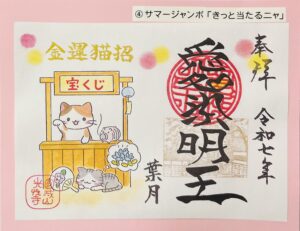 ④サマージャンボ「きっと当たるニャ」
奉拝
令和七年
愛染明王
葉月
金運猫招
宝くじ